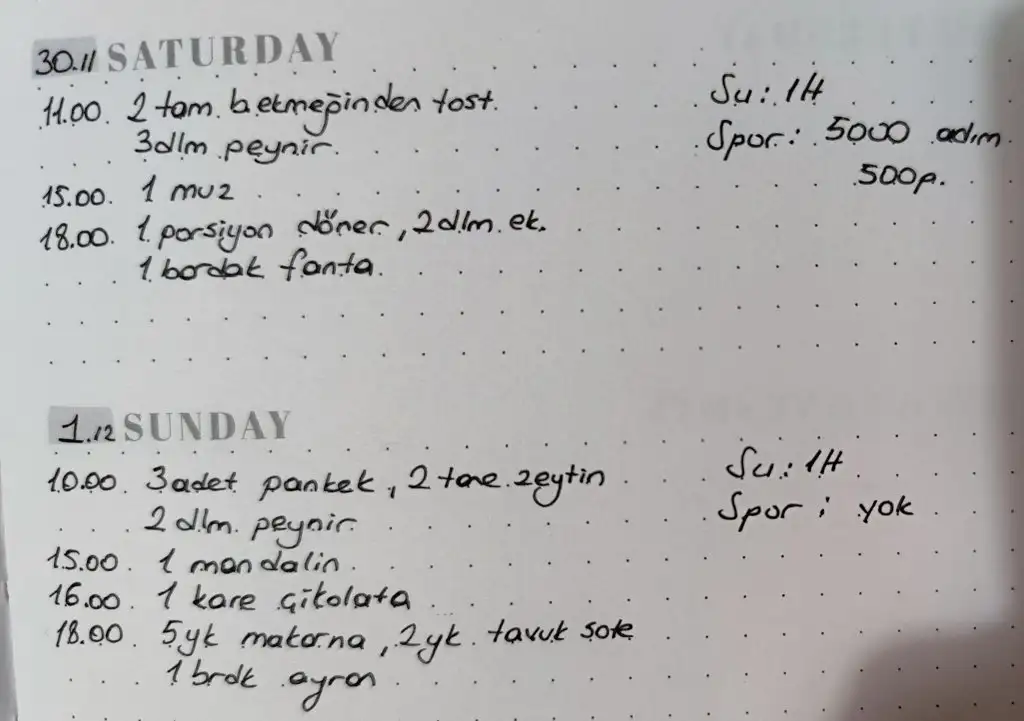 30.11 SATURDAY
11.00 2 tam b. ekmeğinden tost.
Su: 1lt
3dlm peynir.
Spor: 5000 adım
15.00. 1 muz
500p.
18.00. 1 porsiyon döner, 2 dlm. ek.
1 bardak fanta.
1.12 SUNDAY
10.00. 3 adet pankek, 2 tane zeytin
Su: 1lt
2 dlm. peynir.
Spor: yok
15.00. 1 mandalin.
16.00. 1 kare çikolata
18.00. 5yk makarna, 2yk. tavuk sote
1 brdk ayran